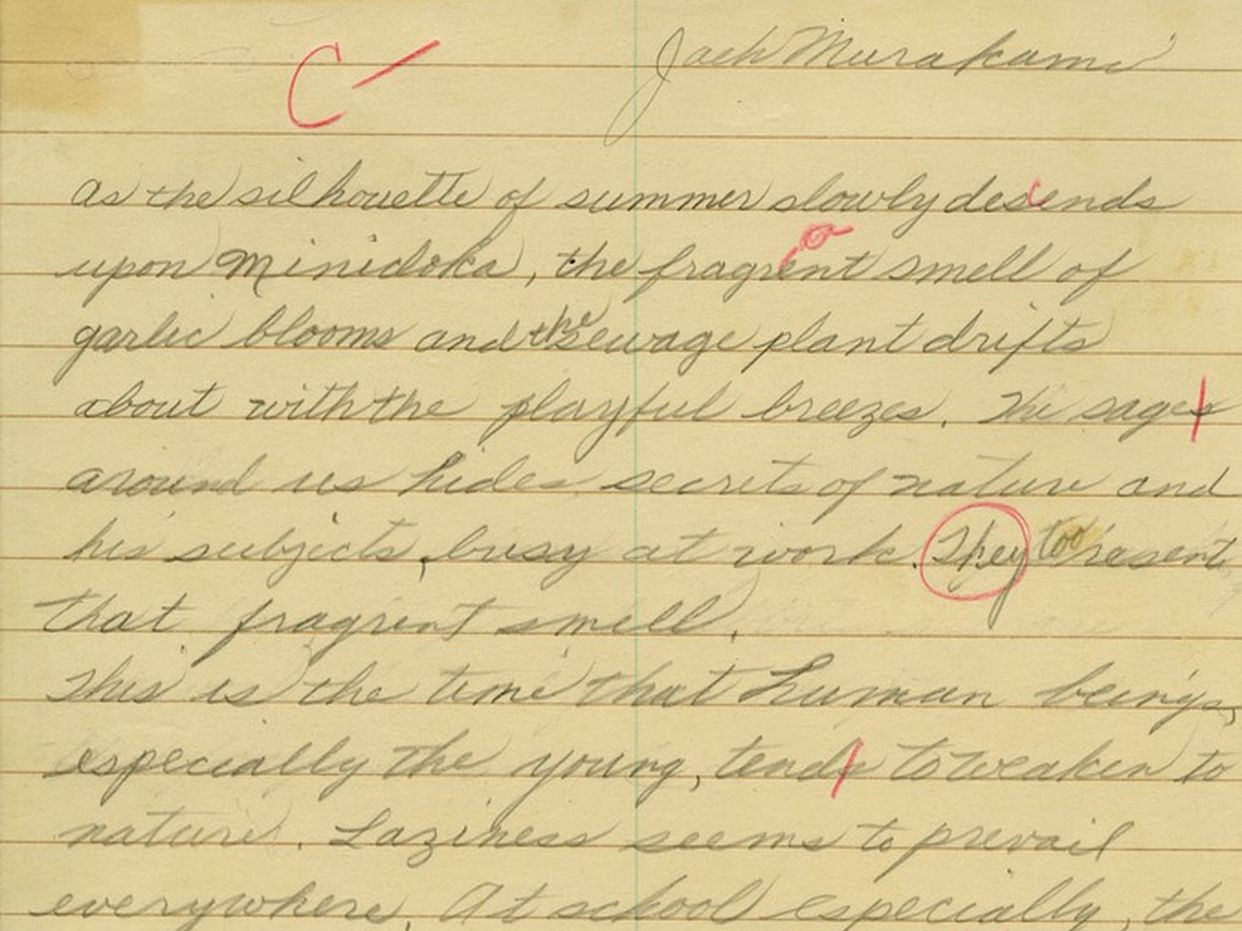 C-
Jack Murakami
As the silhouette of summer slowly desends
c
upon Minidoka, the fragrent smell of
a
garlic blooms and the sewage plant drifts
about with the playful breezes. The sages
around us hides secrets of nature and
his subjects, busy at work. They too resent
that fragrent smell.
This is the time that human beings,
especially the young, tends to weaken to
nature. Laziness seems to prevail
everywhere. At school especially, the